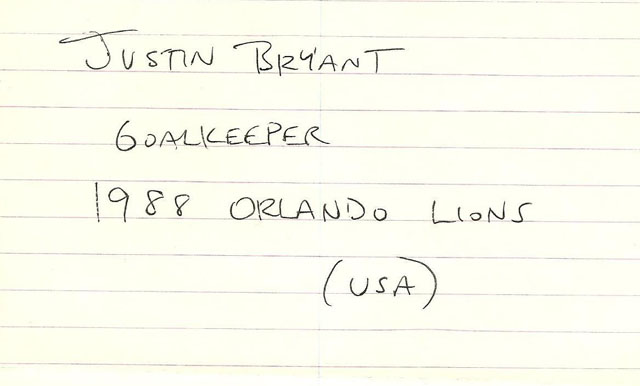 JUSTIN BRYANT
GOALKEEPER
1988 ORLANDO LIONS
(USA)